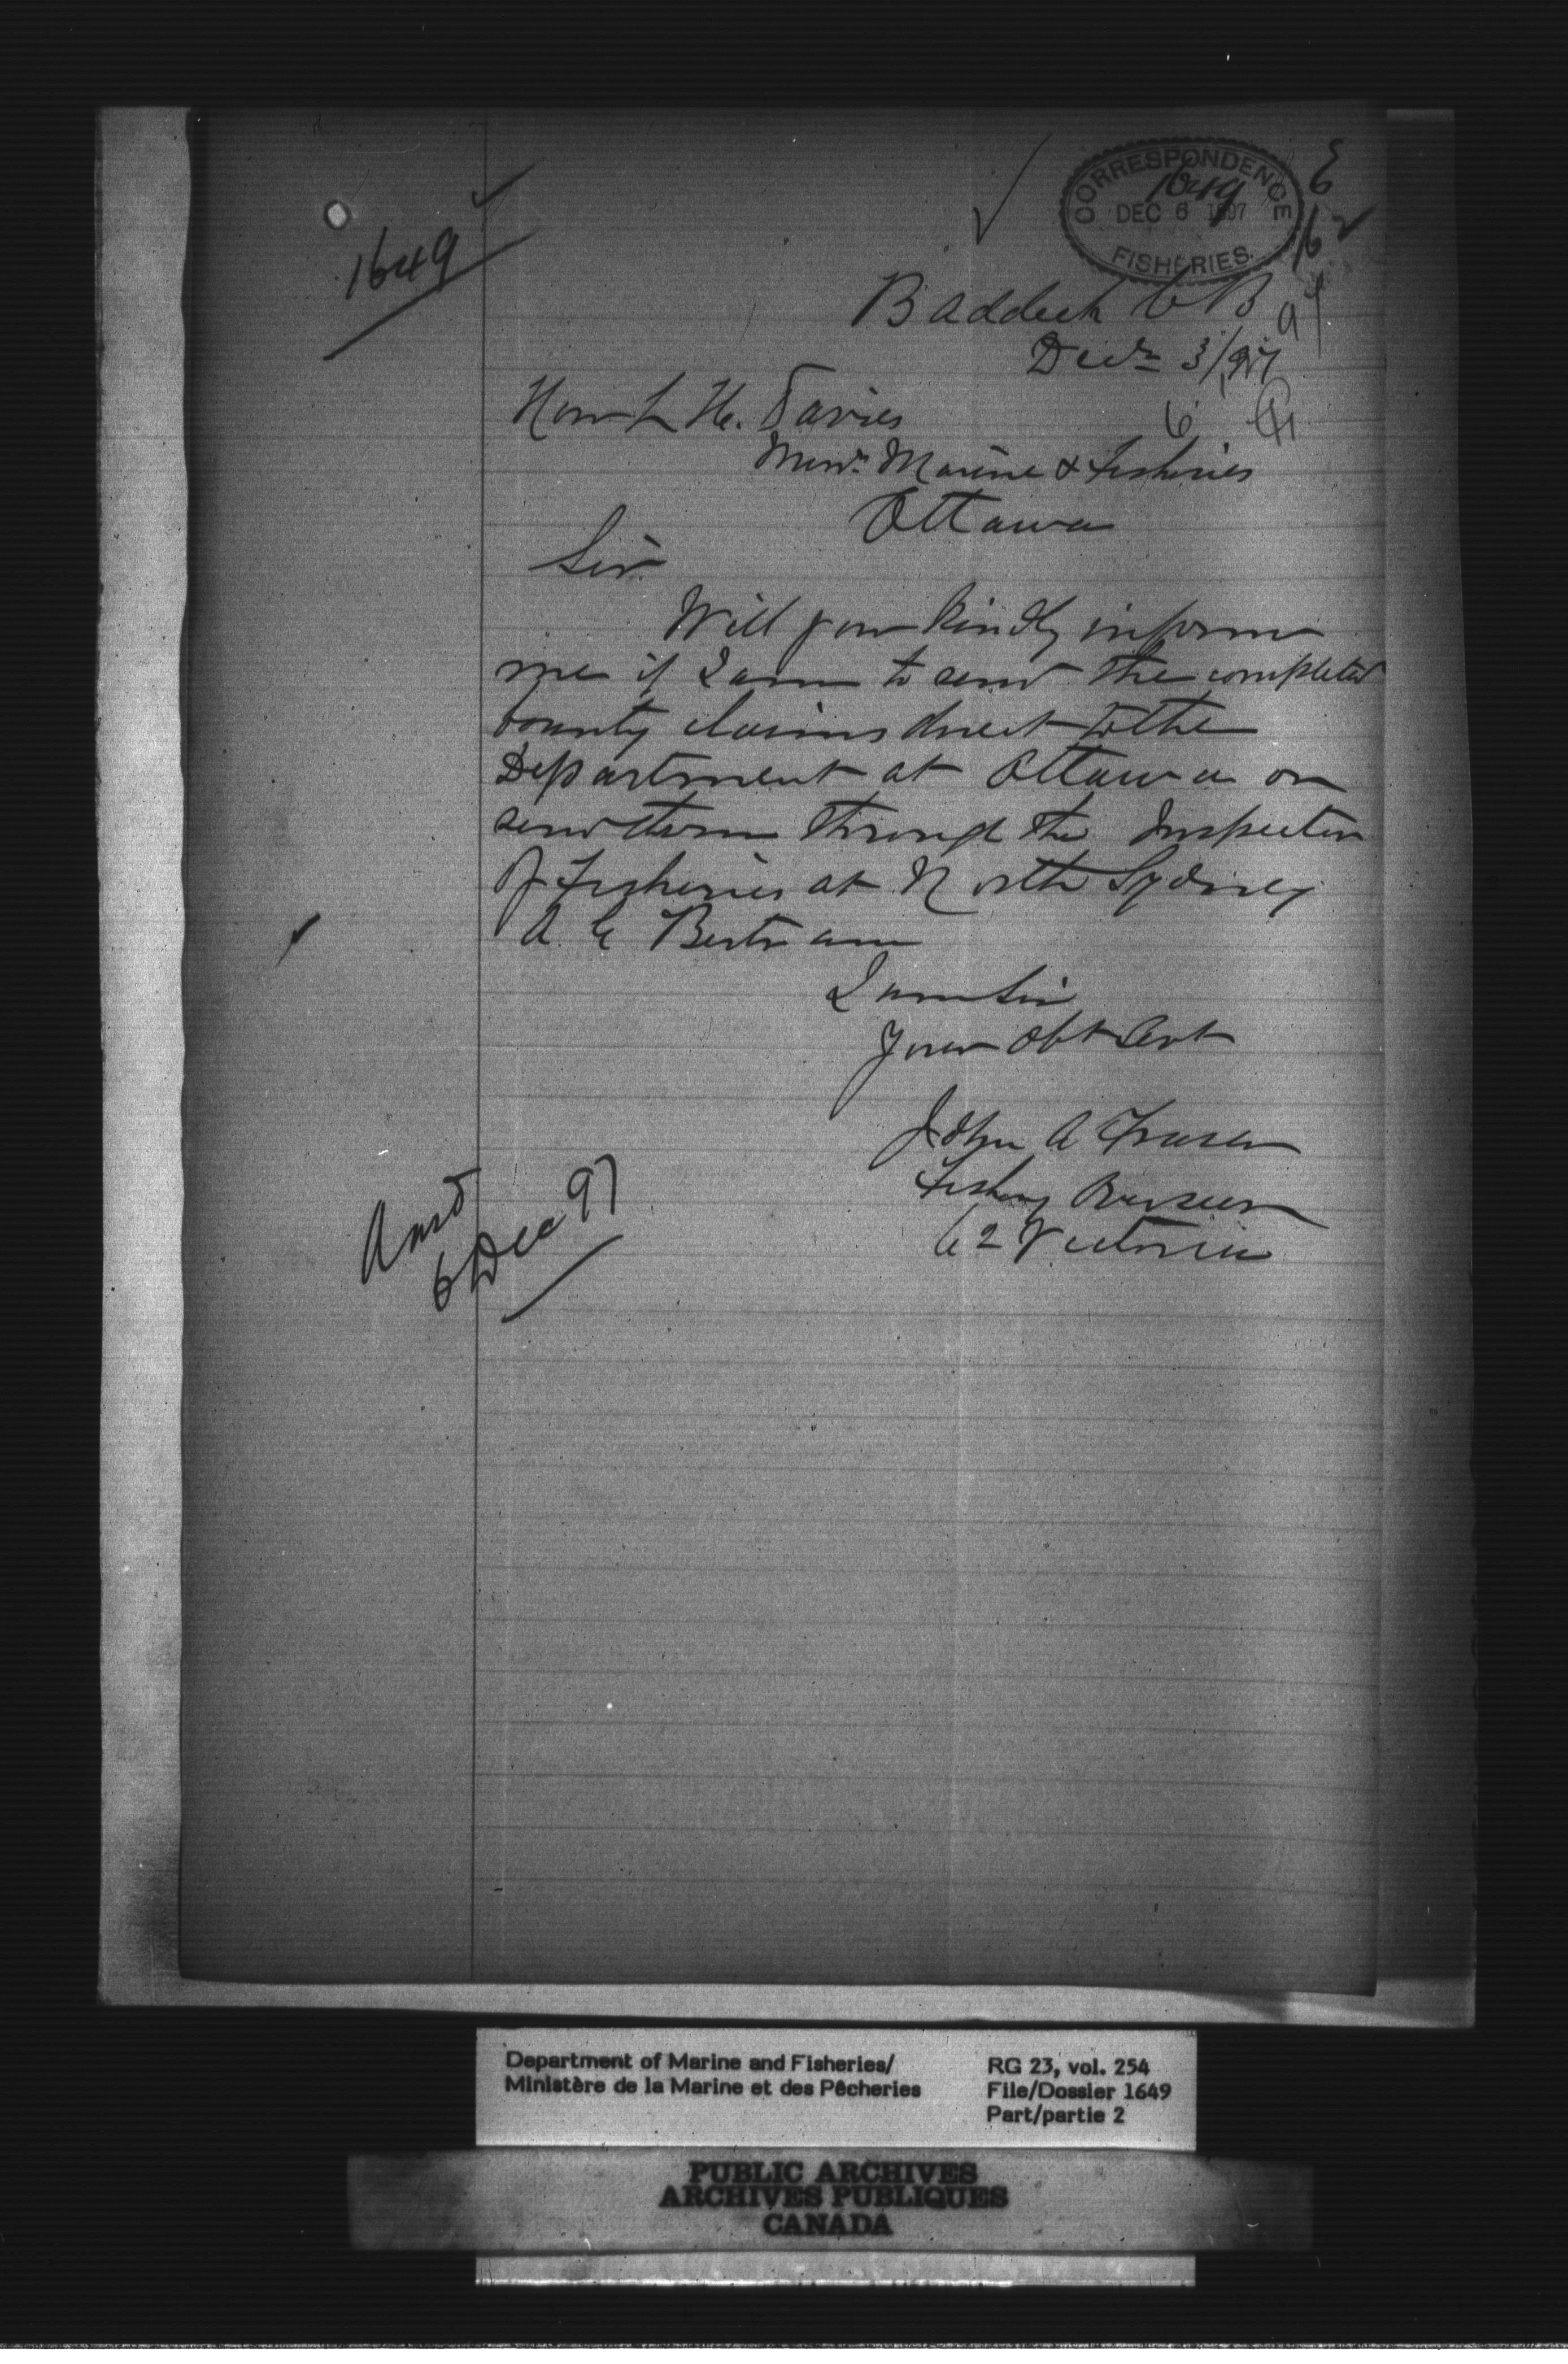 1649
CORRESPONDENCE
1649
DEC 6 1897
FISHERIES
Baddeck C B
Decr 3/97
Hon L H. Davies
Minr Marine & Fisheries
Ottawa
Sir
Will you kindly inform
me if I am to send the completed
bounty claims direct to the
Department at Ottawa or
send them through the Inspector
of Fisheries at North Sydney
A. C Bertram
I am Sir
Your Obt Servt
John A Fraser
Fishery Overseer
Co Victoria
Ansd
6 Dec 97
Department of Marine and Fisheries/
Ministère de la Marine et des Pêcheries
RG 23, vol. 254
File/Dossier 1649
Part/partie 2
PUBLIC ARCHIVES
ARCHIVES PUBLIQUES
CANADA